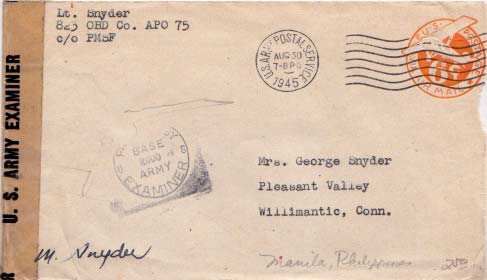 Lt. Snyder
823 OBD Co. APO 75
c/o PMSF
U. S. ARMY EXAMINER
U.S. ARMY POSTAL SERVICE
AUG 30
1945
U.S. POSTAGE
AIR MAIL
BASE
ARMY
EXAMINER
Mrs. George Snyder
Pleasant Valley
Willimantic, Conn.
M. Snyder
Manila, Philippines